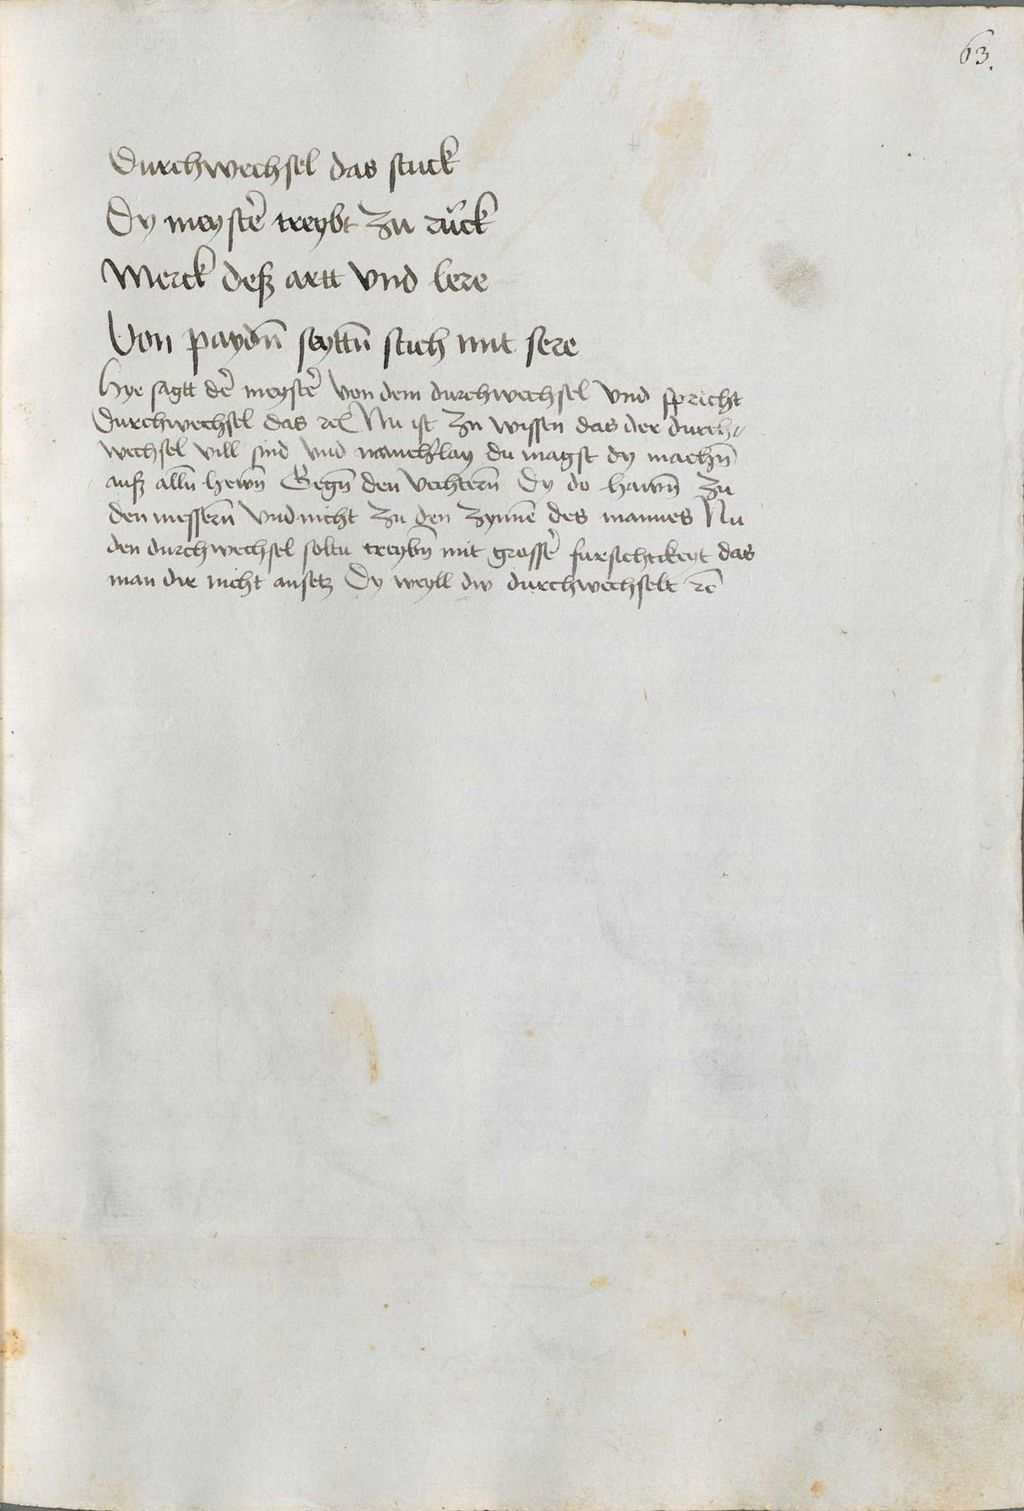 63.
Durchwechsel das stuck
Dy meystẽ treybt zu rück
Merck deß artt vnd lere
Von paydñ seyttñ stich mit sere
Hye sagtt dẽ meystẽ von dem durchwechsel vnd spricht
Durchwechsel das rc̃ Nu ist zu wissen das der durch-
wechsel vill sind vnd manch̃lay du magst dy machñ
auß alln̄ hewn̄ Gegñ den vechtern̄ Dy do hawñ zu
den messern̄ vnd nicht zu den zynnẽ des mannes Nu
den durchwechsel soltu treybñ mit grossẽ fursichtikeyt das
man dir nicht ansetz Dy weyll dw durchwechselt rc̃